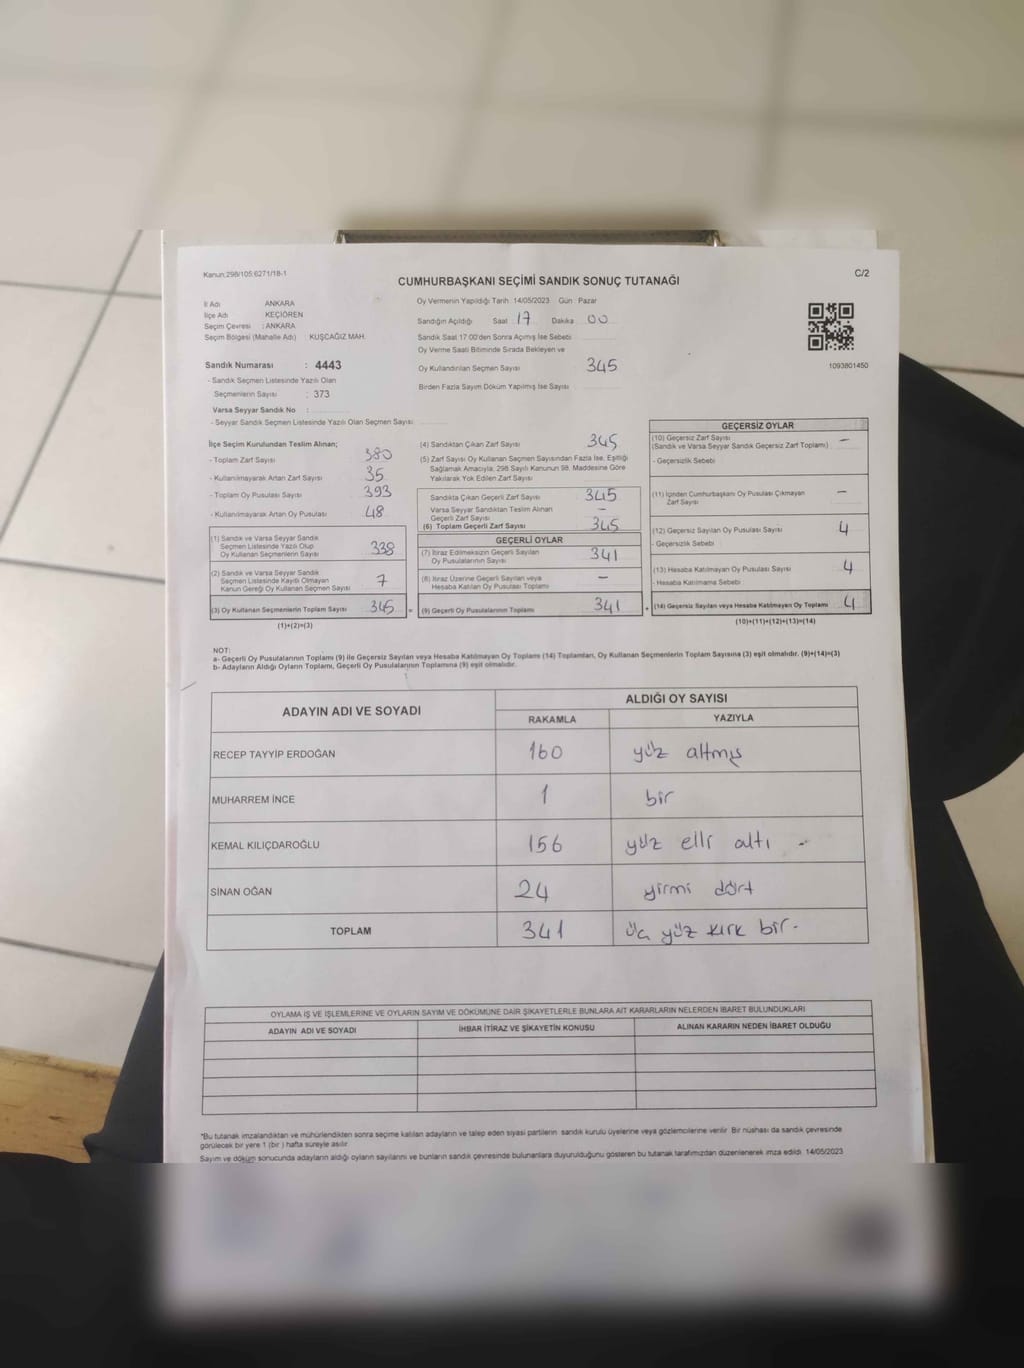 Kanun:298/105;6271/18-1
CUMHURBAŞKANI SEÇİMİ SANDIK SONUÇ TUTANAĞI
C/2
İl Adı ANKARA
İlçe Adı KEÇİÖREN
Seçim Çevresi : ANKARA
Seçim Bölgesi (Mahalle Adı) KUŞCAĞIZ MAH.
Oy Vermenin Yapıldığı Tarih :14/05/2023 Gün : Pazar
Sandığın Açıldığı Saat 17 Dakika 00
Sandık Saat 17:00'den Sonra Açılmış İse Sebebi
Oy Verme Saati Bitiminde Sırada Bekleyen ve
Oy Kullandırılan Seçmen Sayısı 345
Birden Fazla Sayım Döküm Yapılmış İse Sayısı
1093801450
Sandık Numarası : 4443
- Sandık Seçmen Listesinde Yazılı Olan
Seçmenlerin Sayısı : 373
Varsa Seyyar Sandık No :
- Seyyar Sandık Seçmen Listesinde Yazılı Olan Seçmen Sayısı
İlçe Seçim Kurulundan Teslim Alınan;
- Toplam Zarf Sayısı 380
- Kullanılmayarak Artan Zarf Sayısı 35
- Toplam Oy Pusulası Sayısı 393
- Kullanılmayarak Artan Oy Pusulası 48
(1) Sandık ve Varsa Seyyar Sandık
Seçmen Listesinde Yazılı Olup
Oy Kullanan Seçmenlerin Sayısı 338
(2) Sandık ve Varsa Seyyar Sandık
Seçmen Listesinde Kayıtlı Olmayan
Kanun Gereği Oy Kullanan Seçmen Sayısı 7
(3) Oy Kullanan Seçmenlerin Toplam Sayısı 345 =
(1)+(2)=(3)
(4) Sandıktan Çıkan Zarf Sayısı 345
(5) Zarf Sayısı Oy Kullanan Seçmen Sayısından Fazla İse, Eşitliği
Sağlamak Amacıyla, 298 Sayılı Kanunun 98. Maddesine Göre
Yakılarak Yok Edilen Zarf Sayısı
Sandıkta Çıkan Geçerli Zarf Sayısı 345
Varsa Seyyar Sandıktan Teslim Alınan
Geçerli Zarf Sayısı -
(6) Toplam Geçerli Zarf Sayısı 345
GEÇERLİ OYLAR
(7) İtiraz Edilmeksizin Geçerli Sayılan
Oy Pusulalarının Sayısı 341
(8) İtiraz Üzerine Geçerli Sayılan veya
Hesaba Katılan Oy Pusulası Toplamı -
(9) Geçerli Oy Pusulalarının Toplamı 341 +
GEÇERSİZ OYLAR
(10) Geçersiz Zarf Sayısı
(Sandık ve Varsa Seyyar Sandık Geçersiz Zarf Toplamı) -
- Geçersizlik Sebebi
(11) İçinden Cumhurbaşkanı Oy Pusulası Çıkmayan
Zarf Sayısı -
(12) Geçersiz Sayılan Oy Pusulası Sayısı 4
- Geçersizlik Sebebi
(13) Hesaba Katılmayan Oy Pusulası Sayısı 4
- Hesaba Katılmama Sebebi
(14) Geçersiz Sayılan veya Hesaba Katılmayan Oy Toplamı 4
(10)+(11)+(12)+(13)=(14)
NOT:
a- Geçerli Oy Pusulalarının Toplamı (9) ile Geçersiz Sayılan veya Hesaba Katılmayan Oy Toplamı (14) Toplamları, Oy Kullanan Seçmenlerin Toplam Sayısına (3) eşit olmalıdır. (9)+(14)=(3)
b- Adayların Aldığı Oyların Toplamı, Geçerli Oy Pusulalarının Toplamına (9) eşit olmalıdır.
ADAYIN ADI VE SOYADI
ALDIĞI OY SAYISI
RAKAMLA YAZIYLA
RECEP TAYYİP ERDOĞAN 160 yüz altmış
MUHARREM İNCE 1 bir
KEMAL KILIÇDAROĞLU 156 yüz elli altı -
SİNAN OĞAN 24 yirmi dört
TOPLAM 341 üç yüz kırk bir-
OYLAMA İŞ VE İŞLEMLERİNE VE OYLARIN SAYIM VE DÖKÜMÜNE DAİR ŞİKAYETLERLE BUNLARA AİT KARARLARIN NELERDEN İBARET BULUNDUKLARI
ADAYIN ADI VE SOYADI İHBAR İTİRAZ VE ŞİKAYETİN KONUSU ALINAN KARARIN NEDEN İBARET OLDUĞU
*Bu tutanak imzalandıktan ve mühürlendikten sonra seçime katılan adayların ve talep eden siyasi partilerin sandık kurulu üyelerine veya gözlemcilerine verilir. Bir nüshası da sandık çevresinde
görülecek bir yere 1 (bir ) hafta süreyle asılır.
Sayım ve döküm sonucunda adayların aldığı oyların sayılarını ve bunların sandık çevresinde bulunanlara duyurulduğunu gösteren bu tutanak tarafımızdan düzenlenerek imza edildi. 14/05/2023